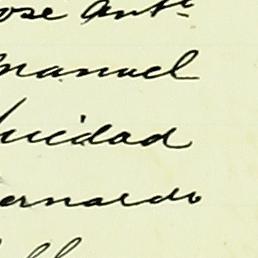 ose Antº
manuel
nicidad
ernardo